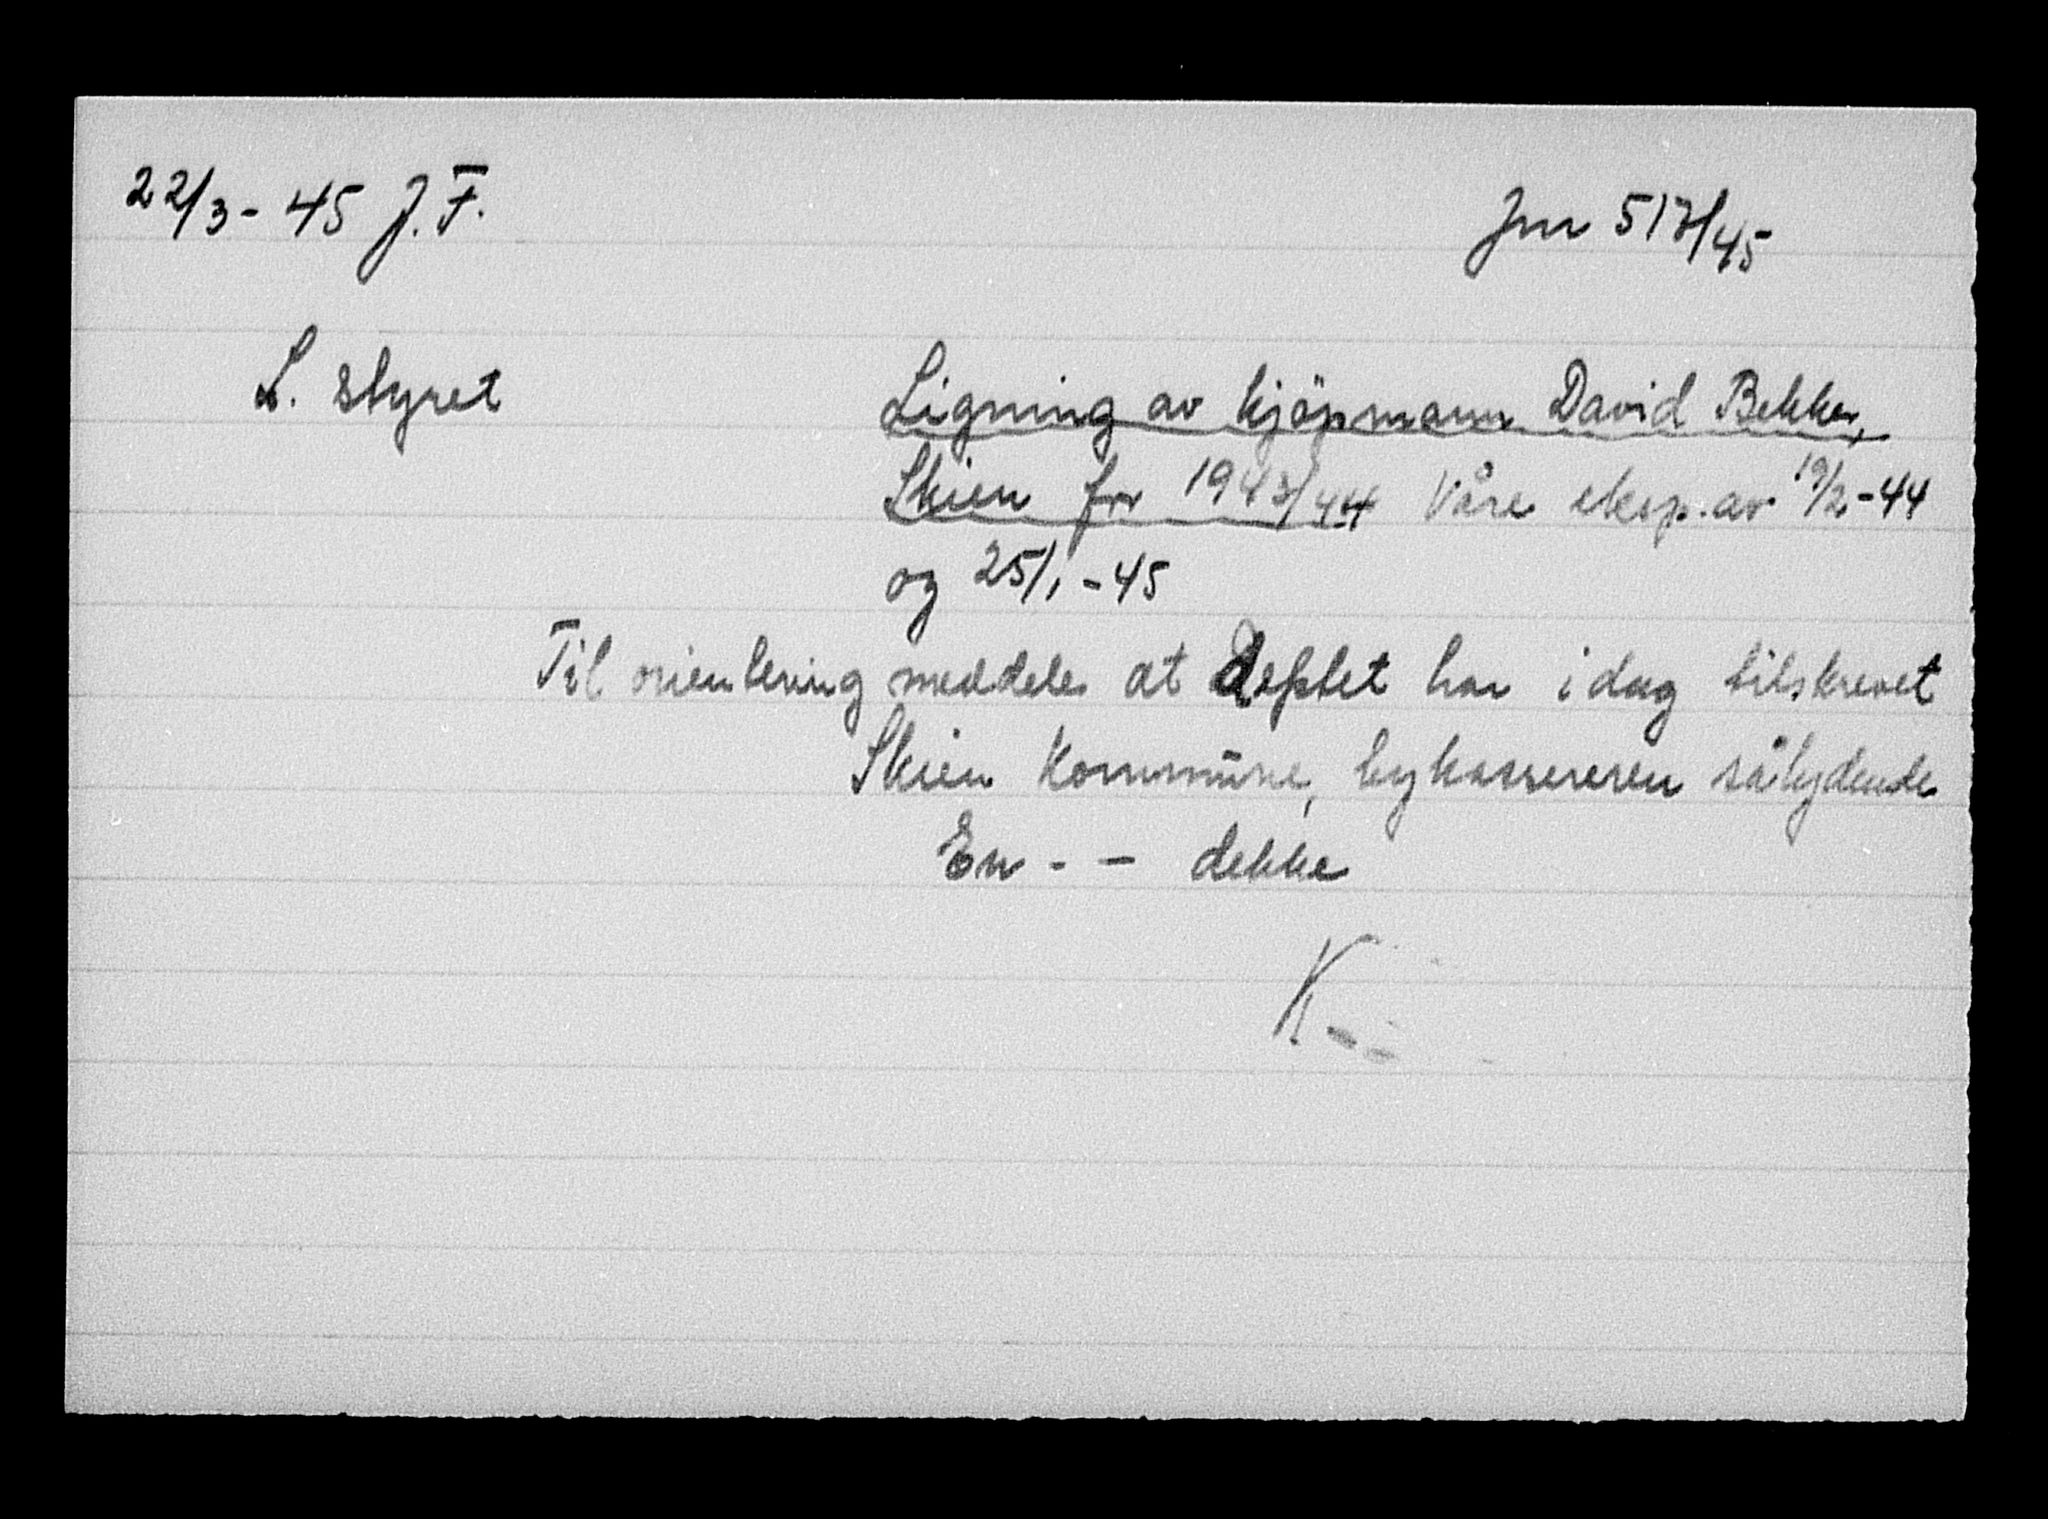 22/3 - 45 J. F.
Jnr 517/45
L. styret
Ligning av kjöpmann David Bekker,
Skien for 1943/44 Våre eksp. av 19/2-44
og 25/1-45
Til orientering meddeles at deptet har idag tilskrevet
Skien Kommune, bykassereren sålydende
En - - dekke
K